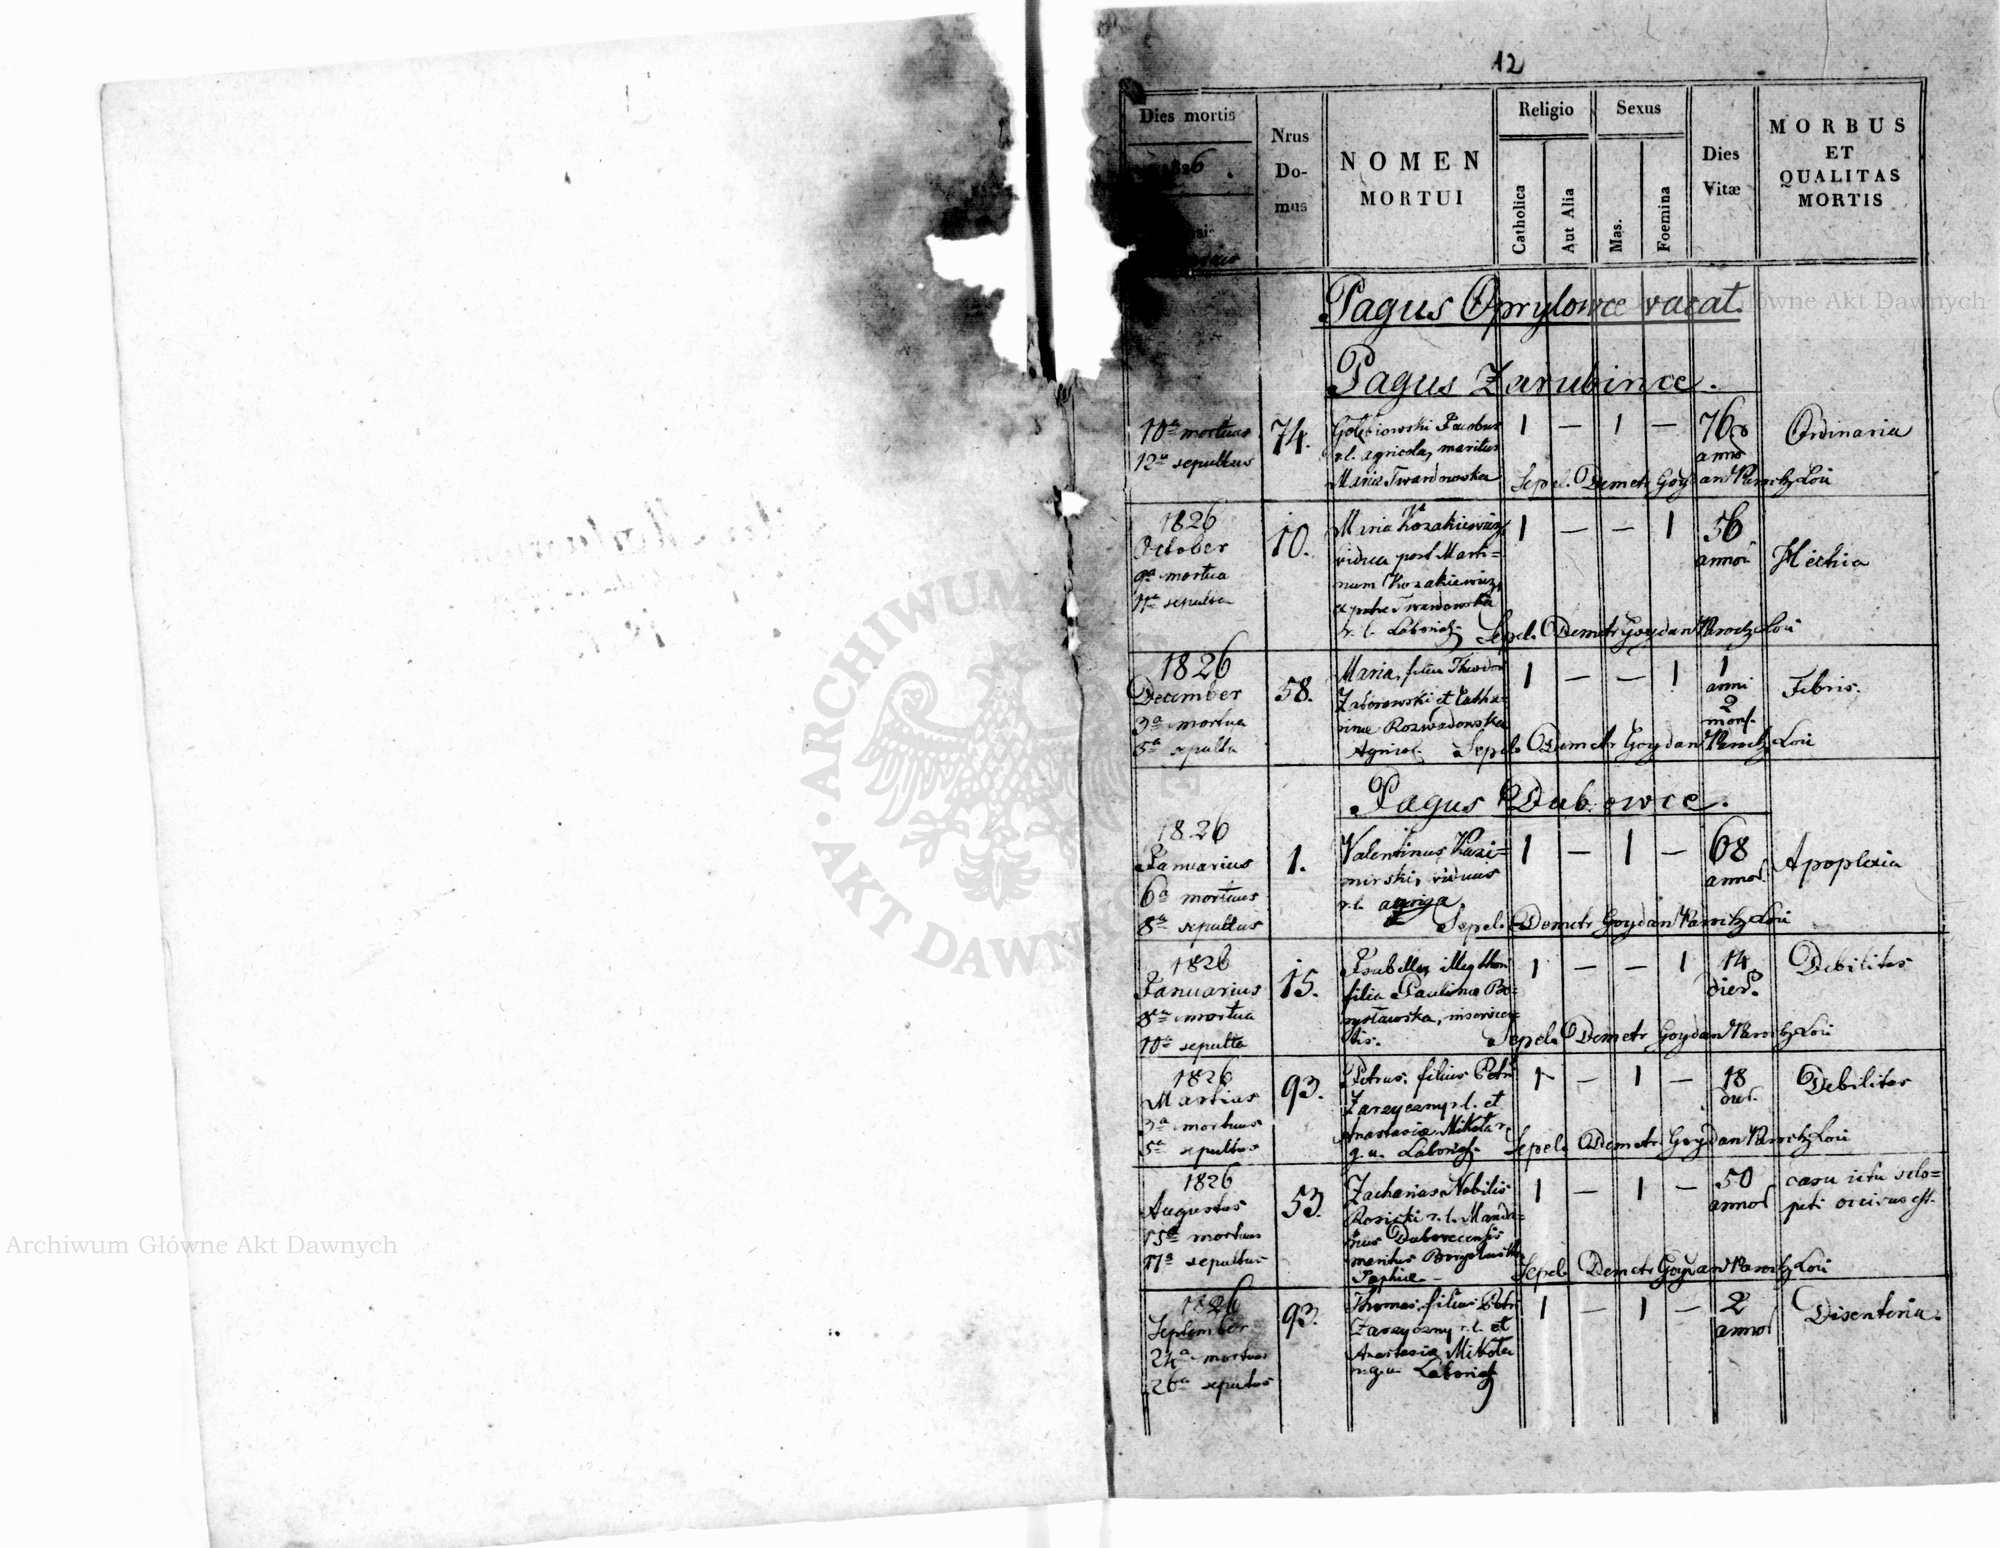 12
Dies mortis
1826
Nrus
Do-
mus
NOMEN
MORTUI
Religio
Catholica
Aut Alia
Sexus
Mas.
Foemina
Dies
Vitæ
MORBUS
ET
QUALITAS
MORTIS
Pagus Oprylowce vacat.
Pagus Zarubince.
10ª mortuus
12ª sepultus
74.
Gołębiowski Jacobus
r.l. agricola, maritus
Maria Twardowska
1 — 1 —
76
annor
Ordinaria
Sepel. Demetr Goydan Paroch Loci
1826
October
9ª mortua
11ª sepulta
10.
Maria Kozakiewicz,
vidua post Marti=
num Kozakiewicz,
Twardowska
r. l. Laborios
1 — — 1
56
annor
Hechia
Sepel. Demetr Goydan Paroch Loci
1826
December
3ª mortua
5ª sepulta
58.
Maria, filia Theodori
Zaborowski et Catha=
rinae Rozwadowska
Agricol.
1 — — 1
1
anni
2
mens.
Febris.
Sepel. Demetr Goydan Paroch Loci
Pagus Dubowce.
1826
Januarius
6ª mortuus
8ª sepultus
1.
Valentinus Kazi=
mirski, viduus
r.l. auriga
1 — 1 —
68
annor
Apoplexia
Sepel. Demetr Goydan Paroch Loci
1826
Januarius
8ª mortua
10ª sepulta
15.
Isabella, illeg thori
filia Paulina
inservien
tis.
1 — — 1
14
dier.
Debilitas
Sepel. Demetr Goydan Paroch Loci
1826
Martius
3ª mortuus
5ª sepultus
93.
Petrus, filius Petri
Zarzyczny r.l. et
Anastasia Mikoła r.
g.u. Laborios
1 — 1 —
18
dier.
Debilitas
Sepel. Demetr. Goydan Paroch Loci
1826
Augustus
15ª mortuus
17ª sepultus
53.
Zacharias Nobilis
Rosicki r.l. Manda=
Dubovecensis
maritus
Sophiae
1 — 1 —
50
annor
casu ictu sclo=
peti occisus est.
Sepel. Demetr Goydan Paroch Loci
1826
September
24ª mortuus
26ª sepultus
93.
Thomas, filius Petri
Zarzyczny r.l. et
Anastasia Mikoła
r.g.u. Laborios
1 — 1 —
2
annor
Disenteria.
ARCHIWUM
AKT DAWNYCH
Archiwum Główne Akt Dawnych
Główne Akt Dawnych